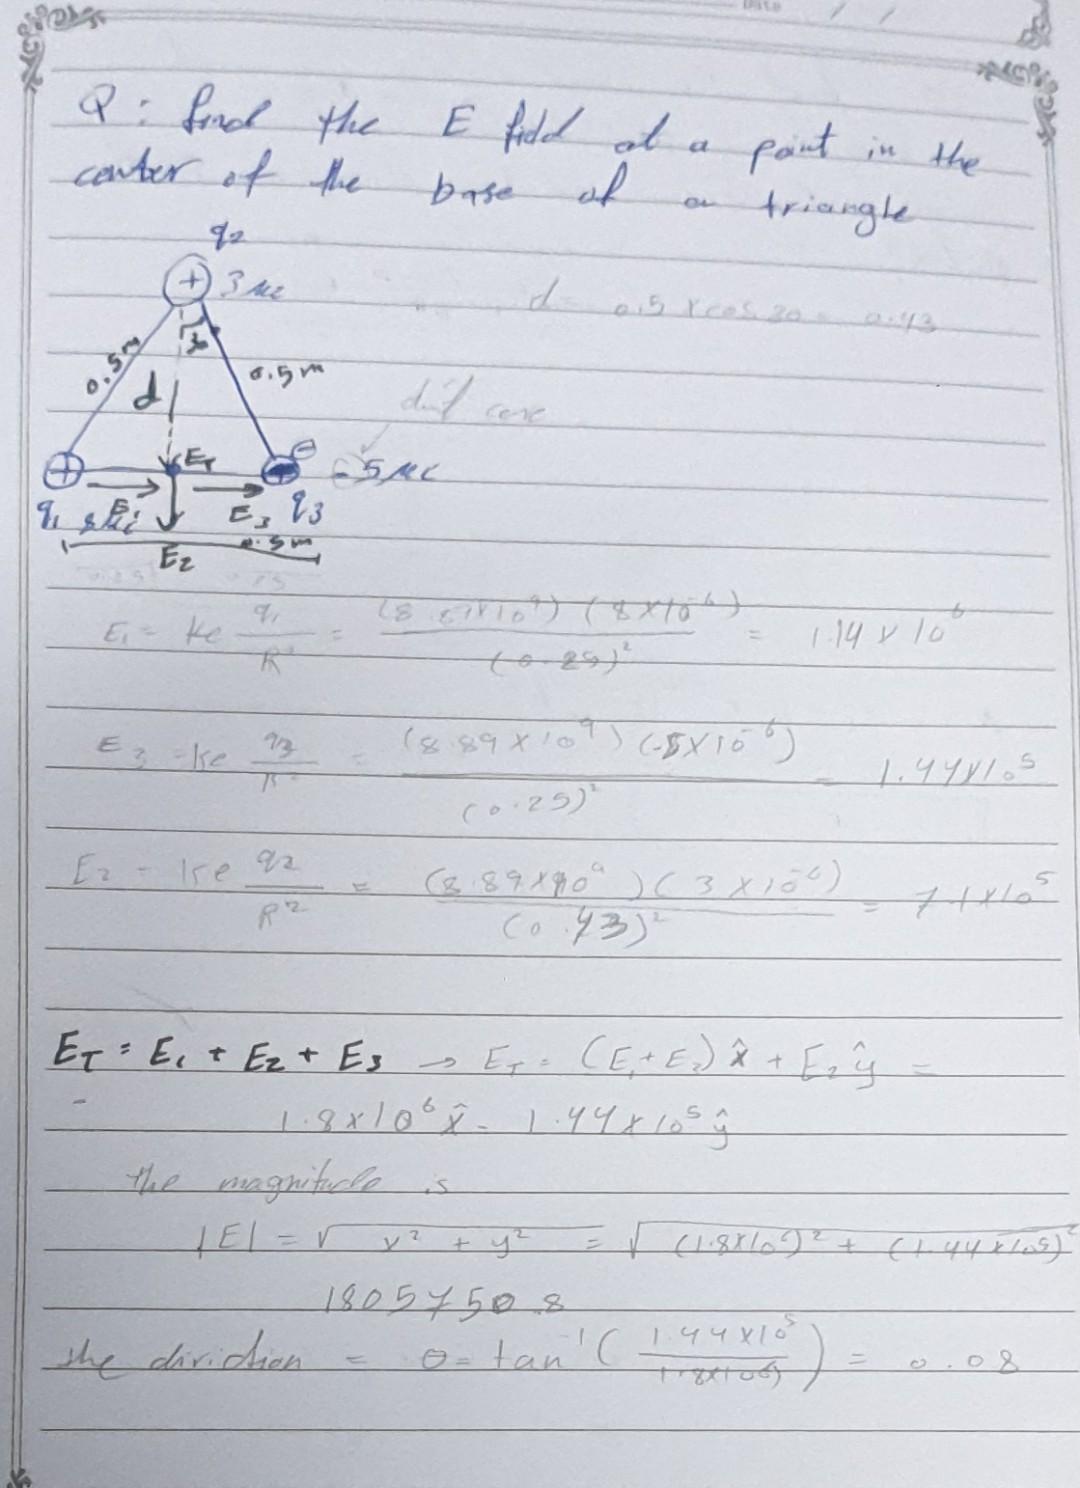 Date / /
Q: find the E field at a point in the
center of the base of a triangle
q2
+ 3 μc
d = 0.5 x cos 30 = 0.43
0.5m
0.5m
d
dif case
ET
-5 μc
q1 8μc E1 E3 q3
E2 0.5m
E1 = ke q1/R² = (8.89x10⁹) (8x10⁻⁶)/(0.25)² = 1.14 x 10⁶
E3 = ke q3/R² = (8.89 x 10⁹) (-5x10⁻⁶)/(0.25)² = 1.44x10⁵
E2 = ke q2/R² = (8.89x10⁹) (3 x10⁻⁶)/(0.43)² = 7.1x10⁵
ET = E1 + E2 + E3 → ET = (E1+E3) x̂ + E2 ŷ =
1.8x10⁶ x̂ - 1.44x10⁵ ŷ
the magnitude is
|E| = √ x² + y² = √ (1.8x10⁶)² + (1.44x10⁵)²
1805750.8
the diriction = θ= tan⁻¹ (1.44x10⁵/1.8x10⁶) = 0.08